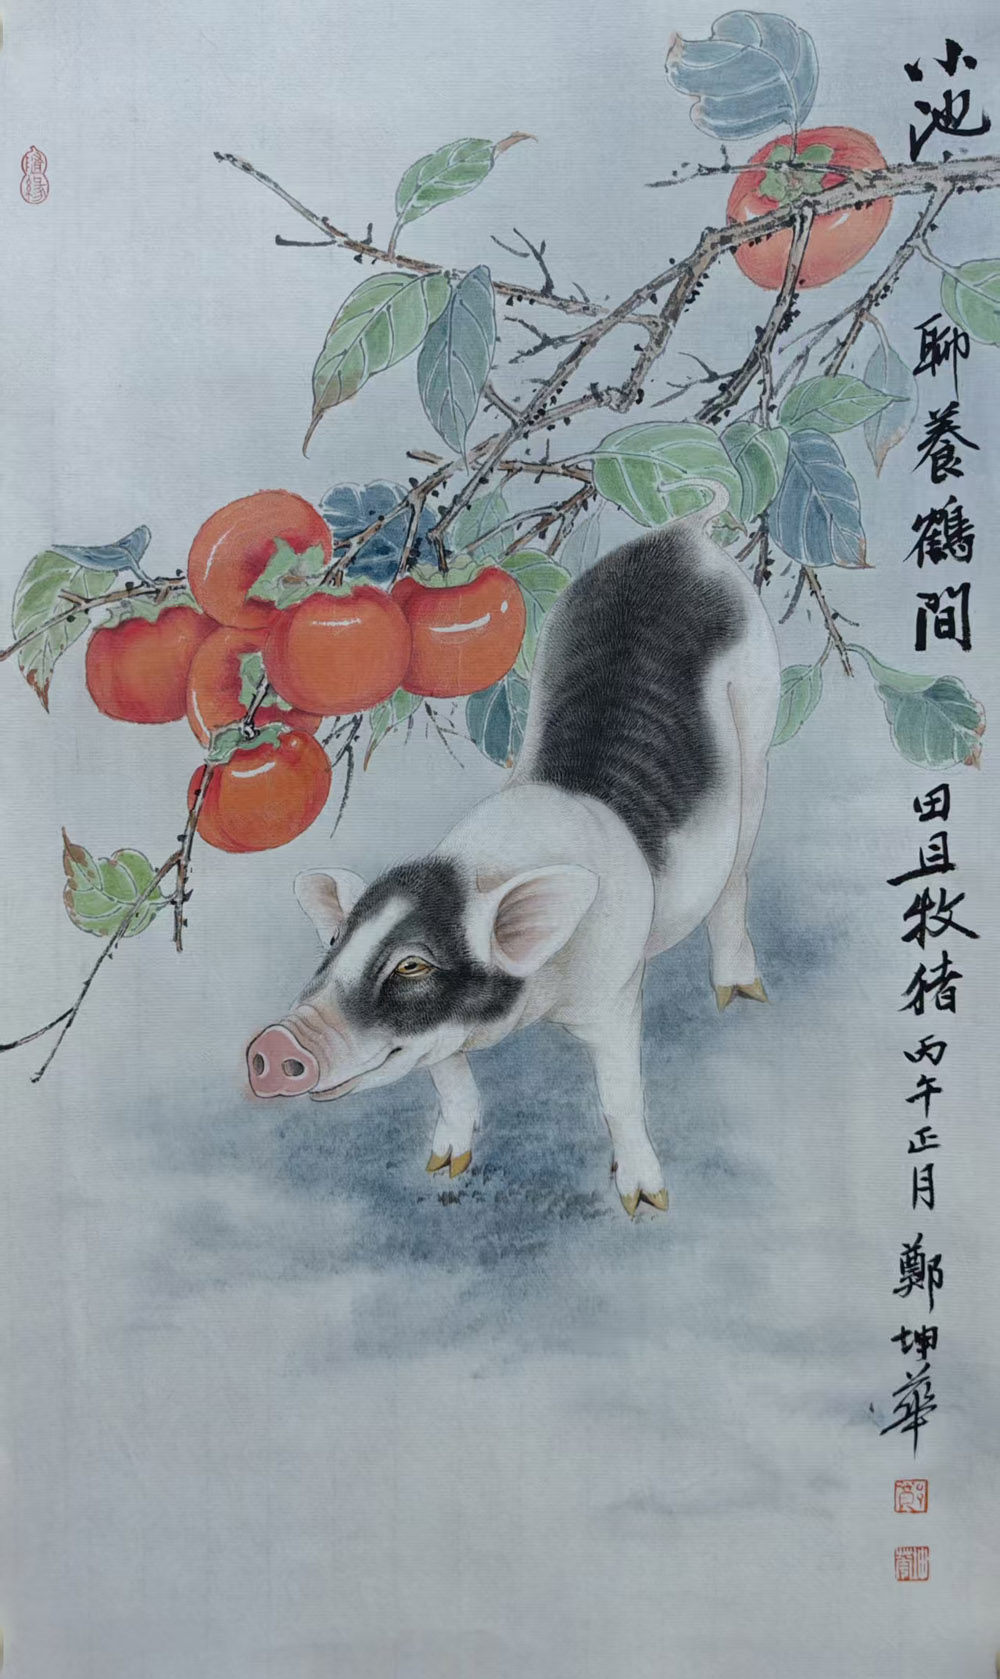 小池聊養鶴間田且牧猪丙午正月鄭坤華
隨緣